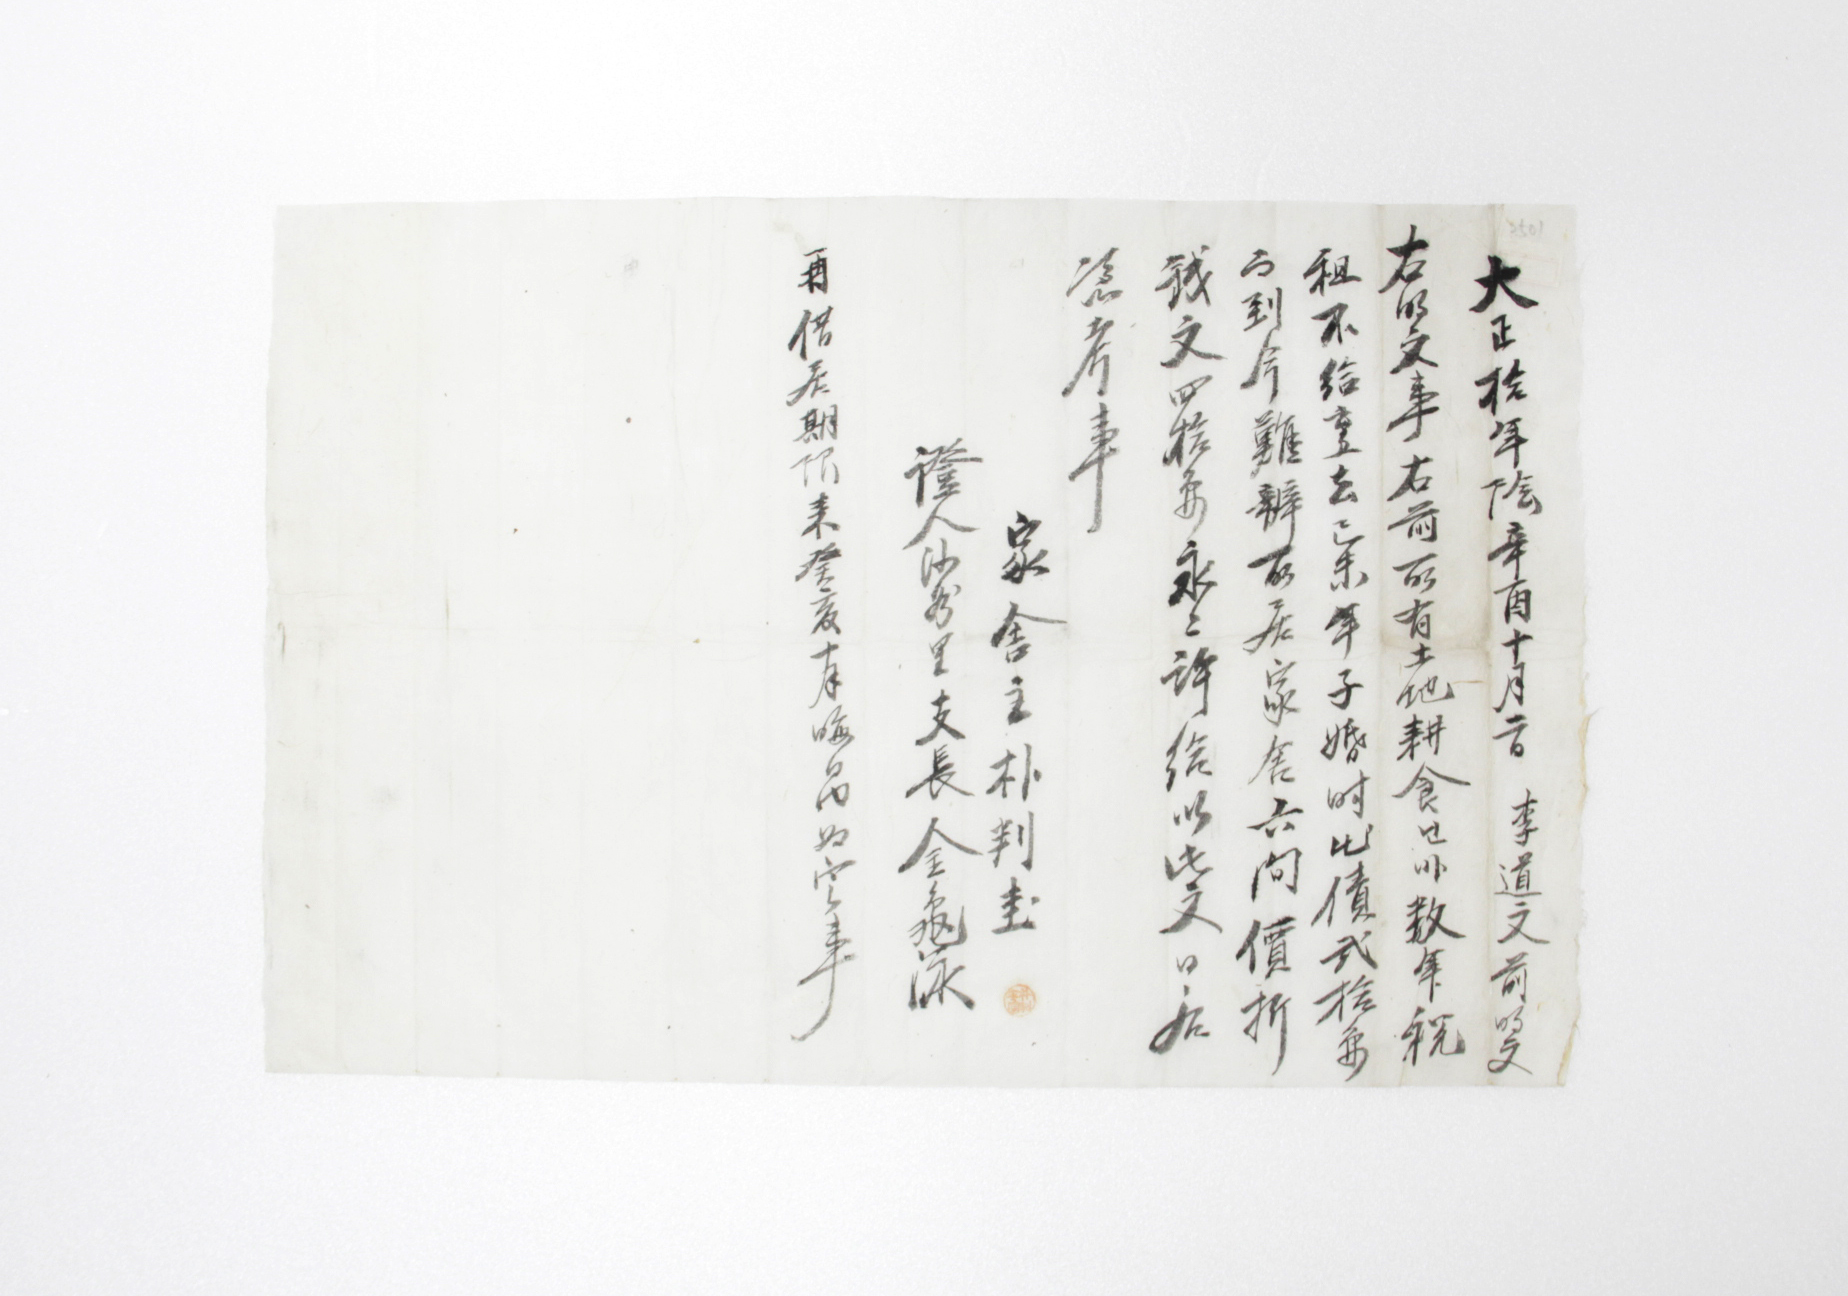 大正拾年陰辛酉十月二日 李道文前明文
右明文事右前所有土地耕食已的数年税
租不給 去己未年子婚时比債弐拾兩
而到今難辦故居家舍六间價折
錢文四拾兩永ミ許給以此文日后
憑考事
家舍主朴判圭
證人沙 里支長金龜泳
再借居期限来癸亥十月晦日内为定事
2501